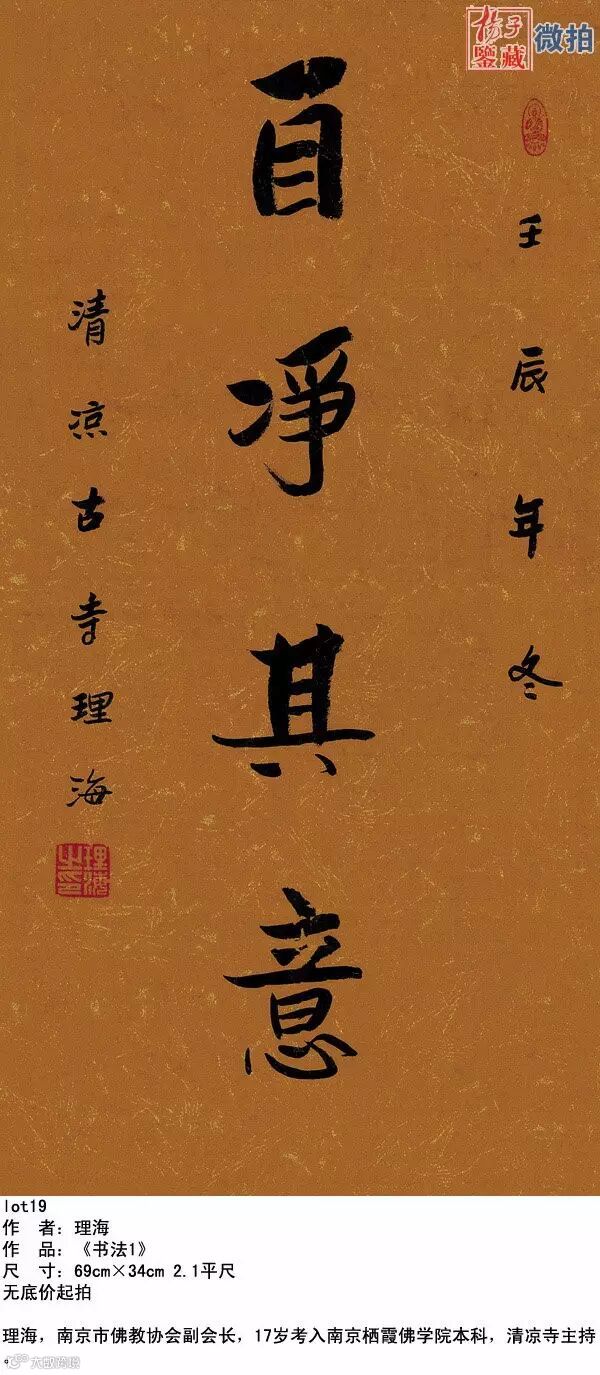 杨子
鑒藏
微拍
壬辰年冬
自凈其意
清凉古寺理海
理海之印
lot19
作 者：理海
作 品：《书法1》
尺 寸：69cm×34cm 2.1平尺
无底价起拍
理海，南京市佛教协会副会长，17岁考入南京栖霞佛学院本科，清凉寺主持
。
大数跨境